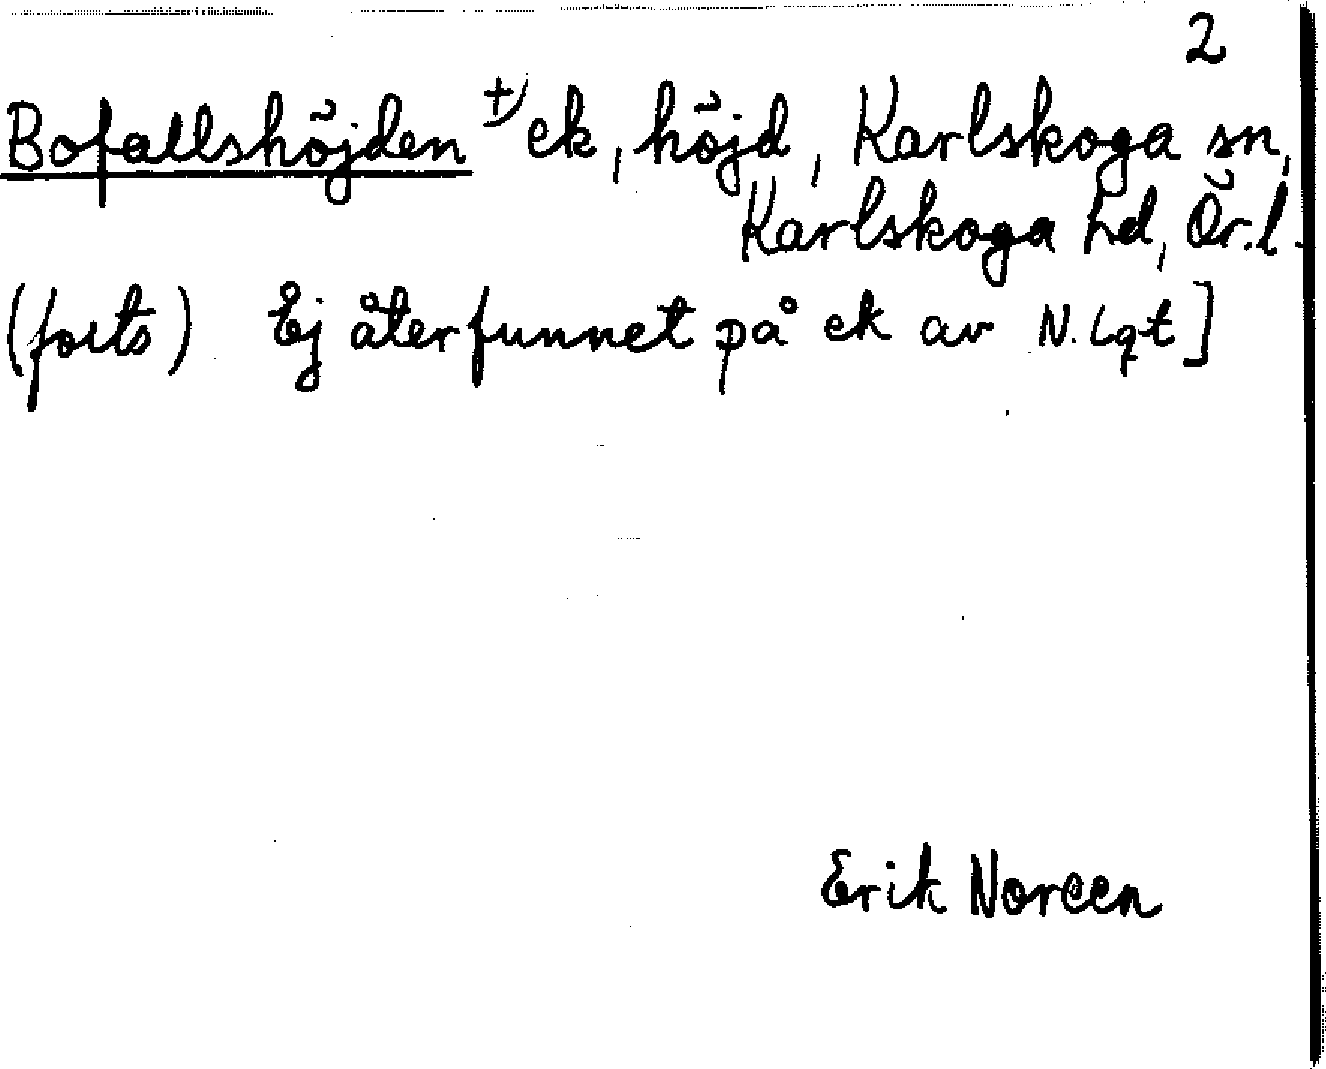 2
Bofallshöjden +) ek, höjd, Karlskoga sn,
Karlskoga hd, Ör.l.
(forts) Ej återfunnet på ek av N. Lqt]
Erik Noreen